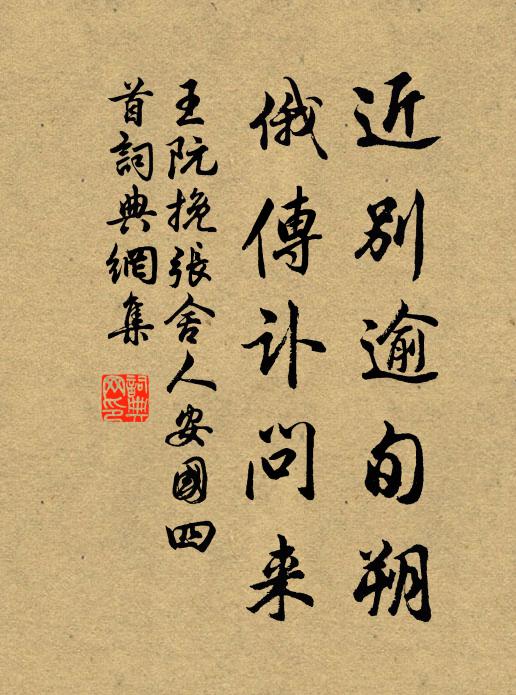 近別逾旬朔
俄傳訃問来
王阮挽張舍人安國四
首詞典網集
詞典
网印